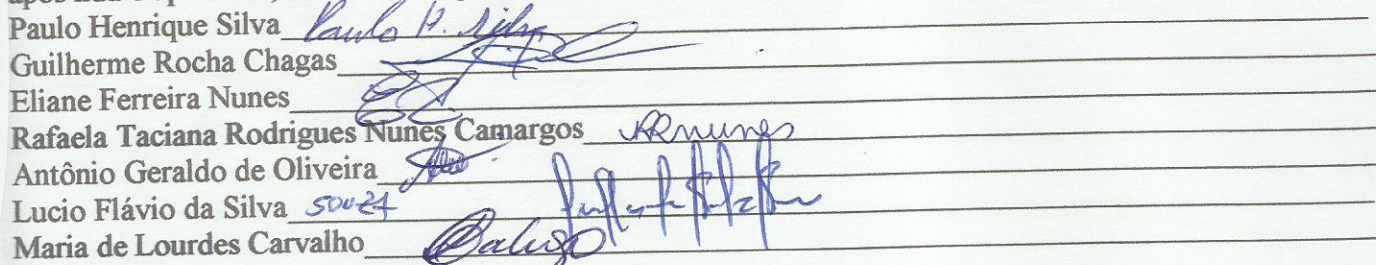 Paulo Henrique Silva Paulo H. Silva
Guilherme Rocha Chagas
Eliane Ferreira Nunes
Rafaela Taciana Rodrigues Nunes Camargos RRnunes
Antônio Geraldo de Oliveira
Lucio Flávio da Silva SOUZA
Maria de Lourdes Carvalho